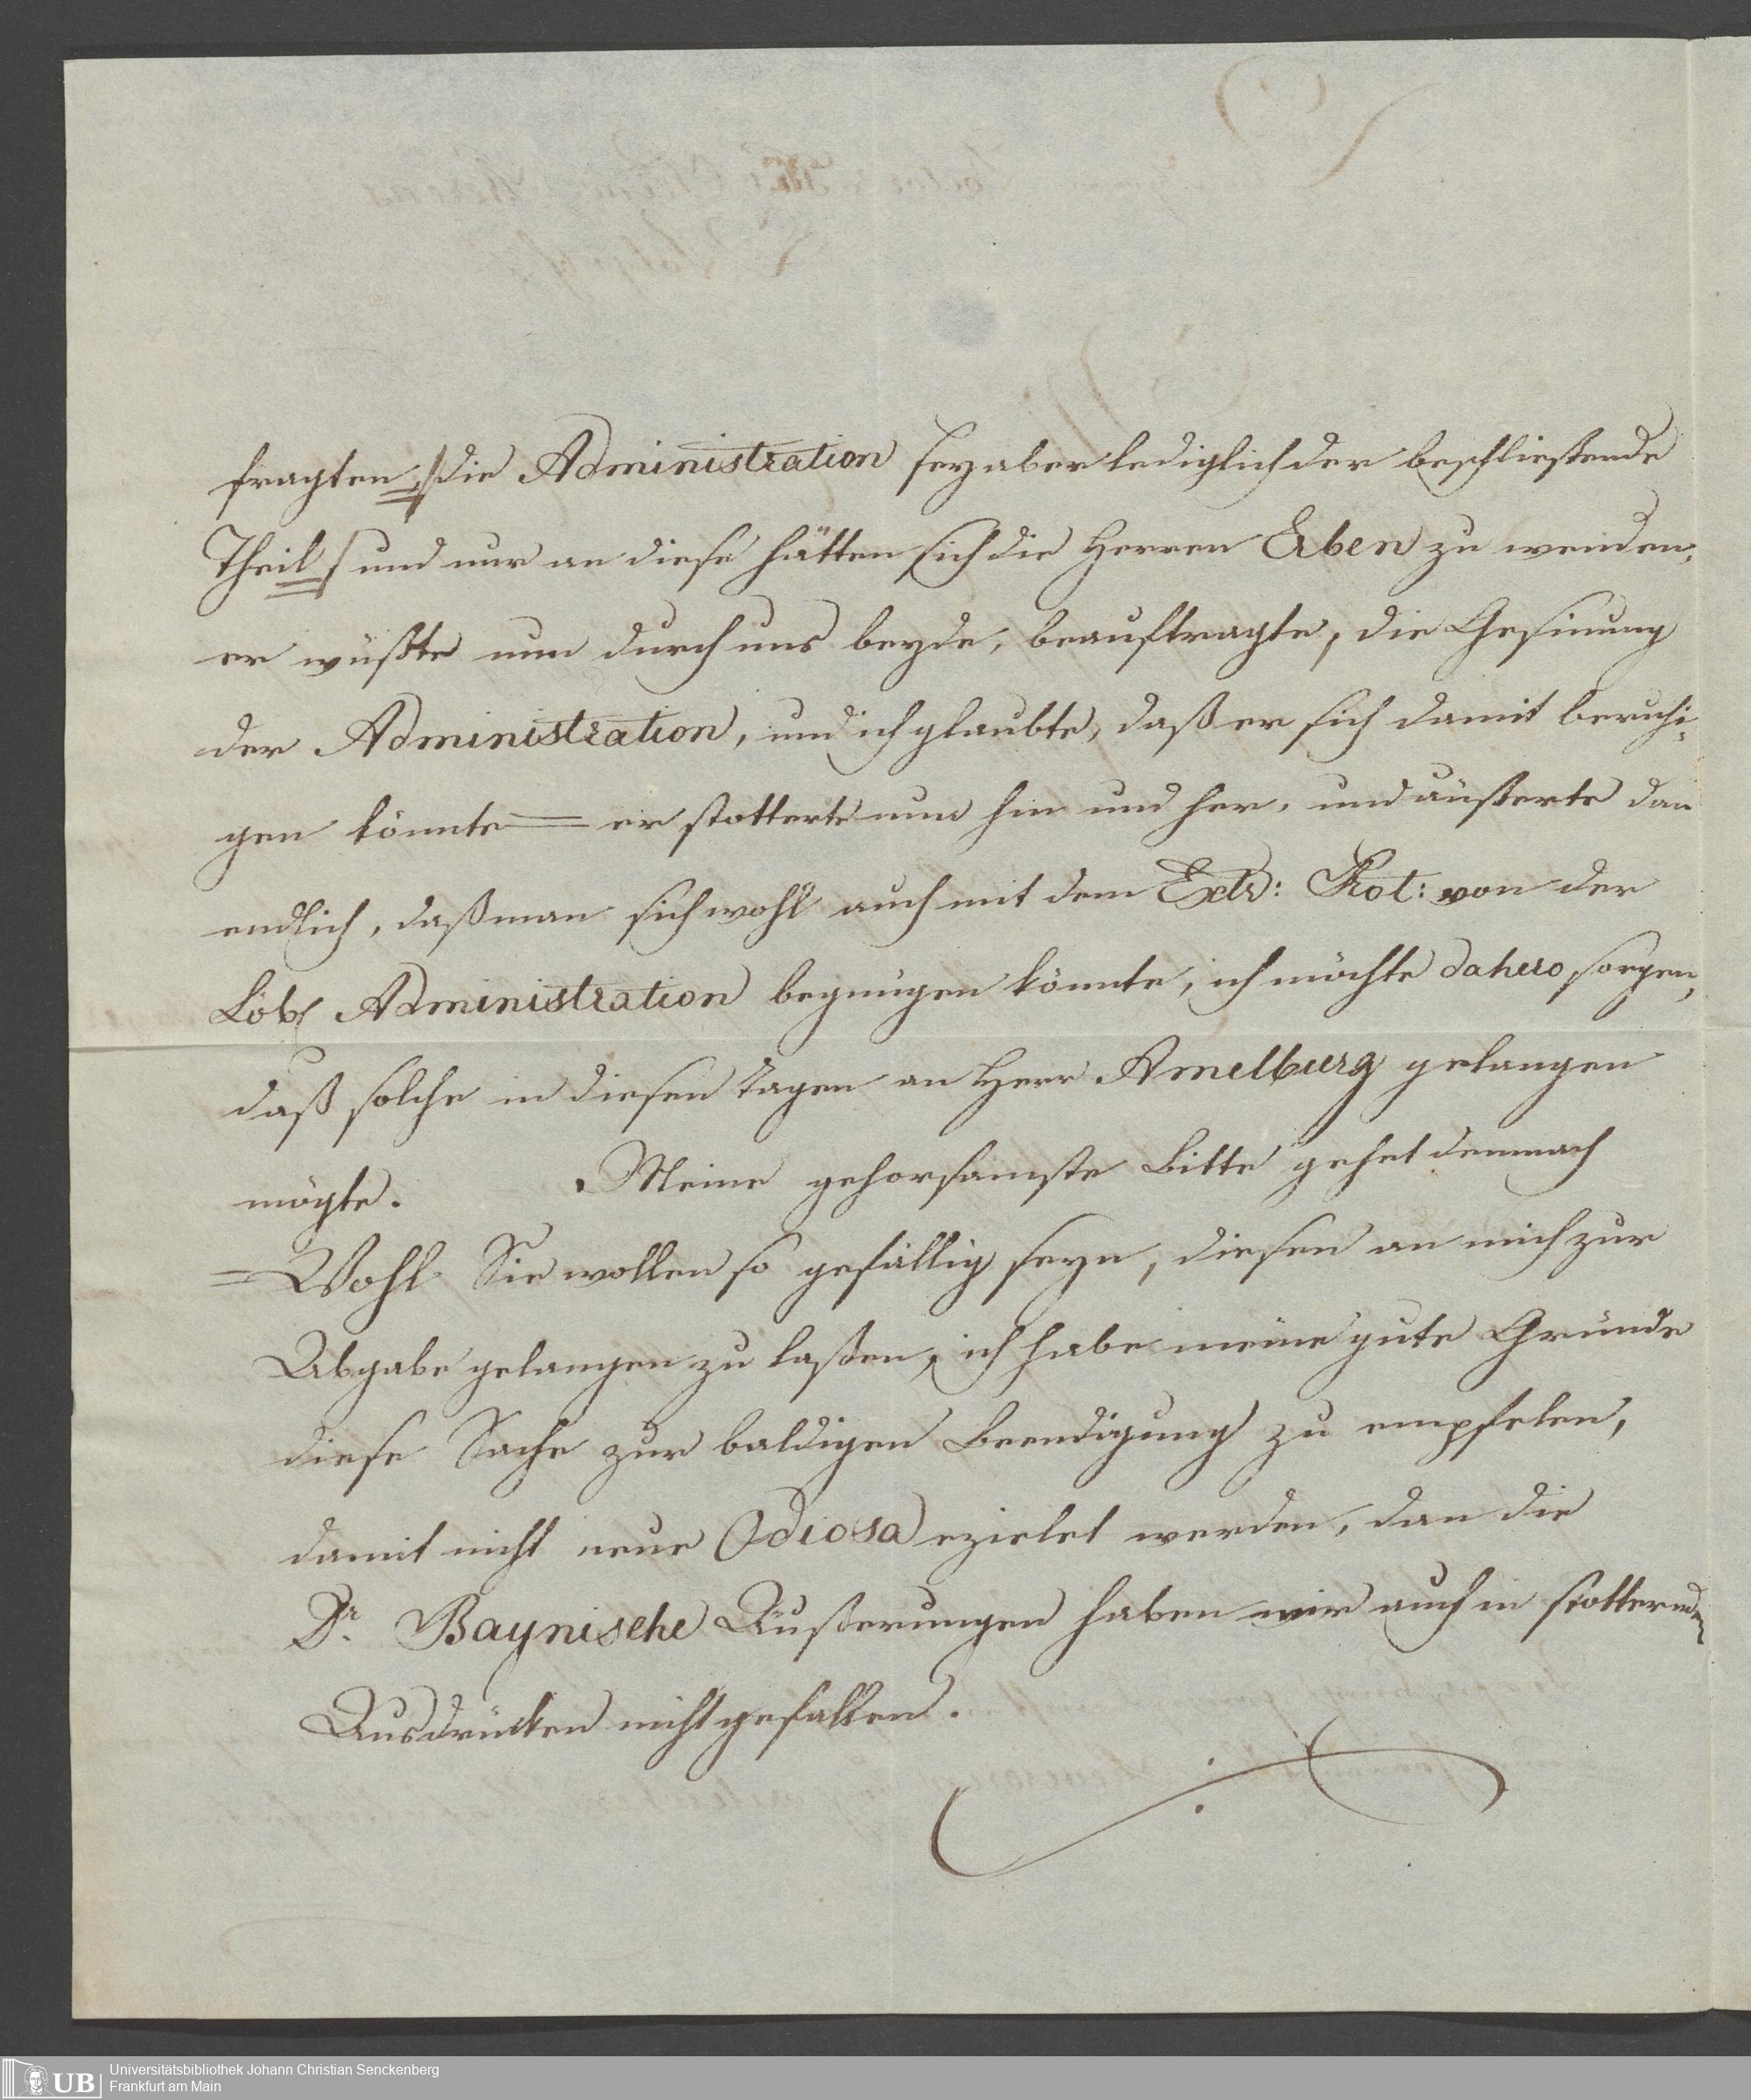 fragten, die Administration sey aber lediglich der beschließende
Theil / und nur an diese hätten sich die Herren Erben zu wenden,
er wüßte nun durch uns beyde, beauftragte, die Gesinnung
der Administration, und ich glaubte, daß er sich damit beruhi=
gen könnte = er stotterte nun hin und her, und äußerte dan
endlich, daß man sich wohl auch mit dem Extr: Prot: von der
Löbl Administration begnügen könnte, ich möchte dahero sorgen,
daß solche in diesen Tagen an Herr Amelburg gelangen
mögte. Meine gehorsamste Bitte gehet demnach
= Wohl Sie wollen so gefällig seyn, diesen an mich zur
Abgabe gelangen zu laßen, ich habe meine gute Gründe
diese Sache zur baldigen Beendigung zu empfelen,
damit nicht neue Odiosa erzielet werden, dan die
Dr. Baynische Äußerungen haben mir auch in stotternden
Ausdrücken nicht gefallen.
UB
Universitätsbibliothek Johann Christian Senckenberg
Frankfurt am Main